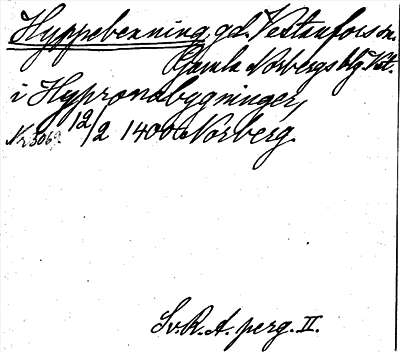 Hyppebenning, gd. Vestanfors sn.
Gamla Norbergs bg. Vstm.
i Hypronabygninger,
Nr 3069. 12/2 1400 Norberg.
Sv. R. A. perg. II.